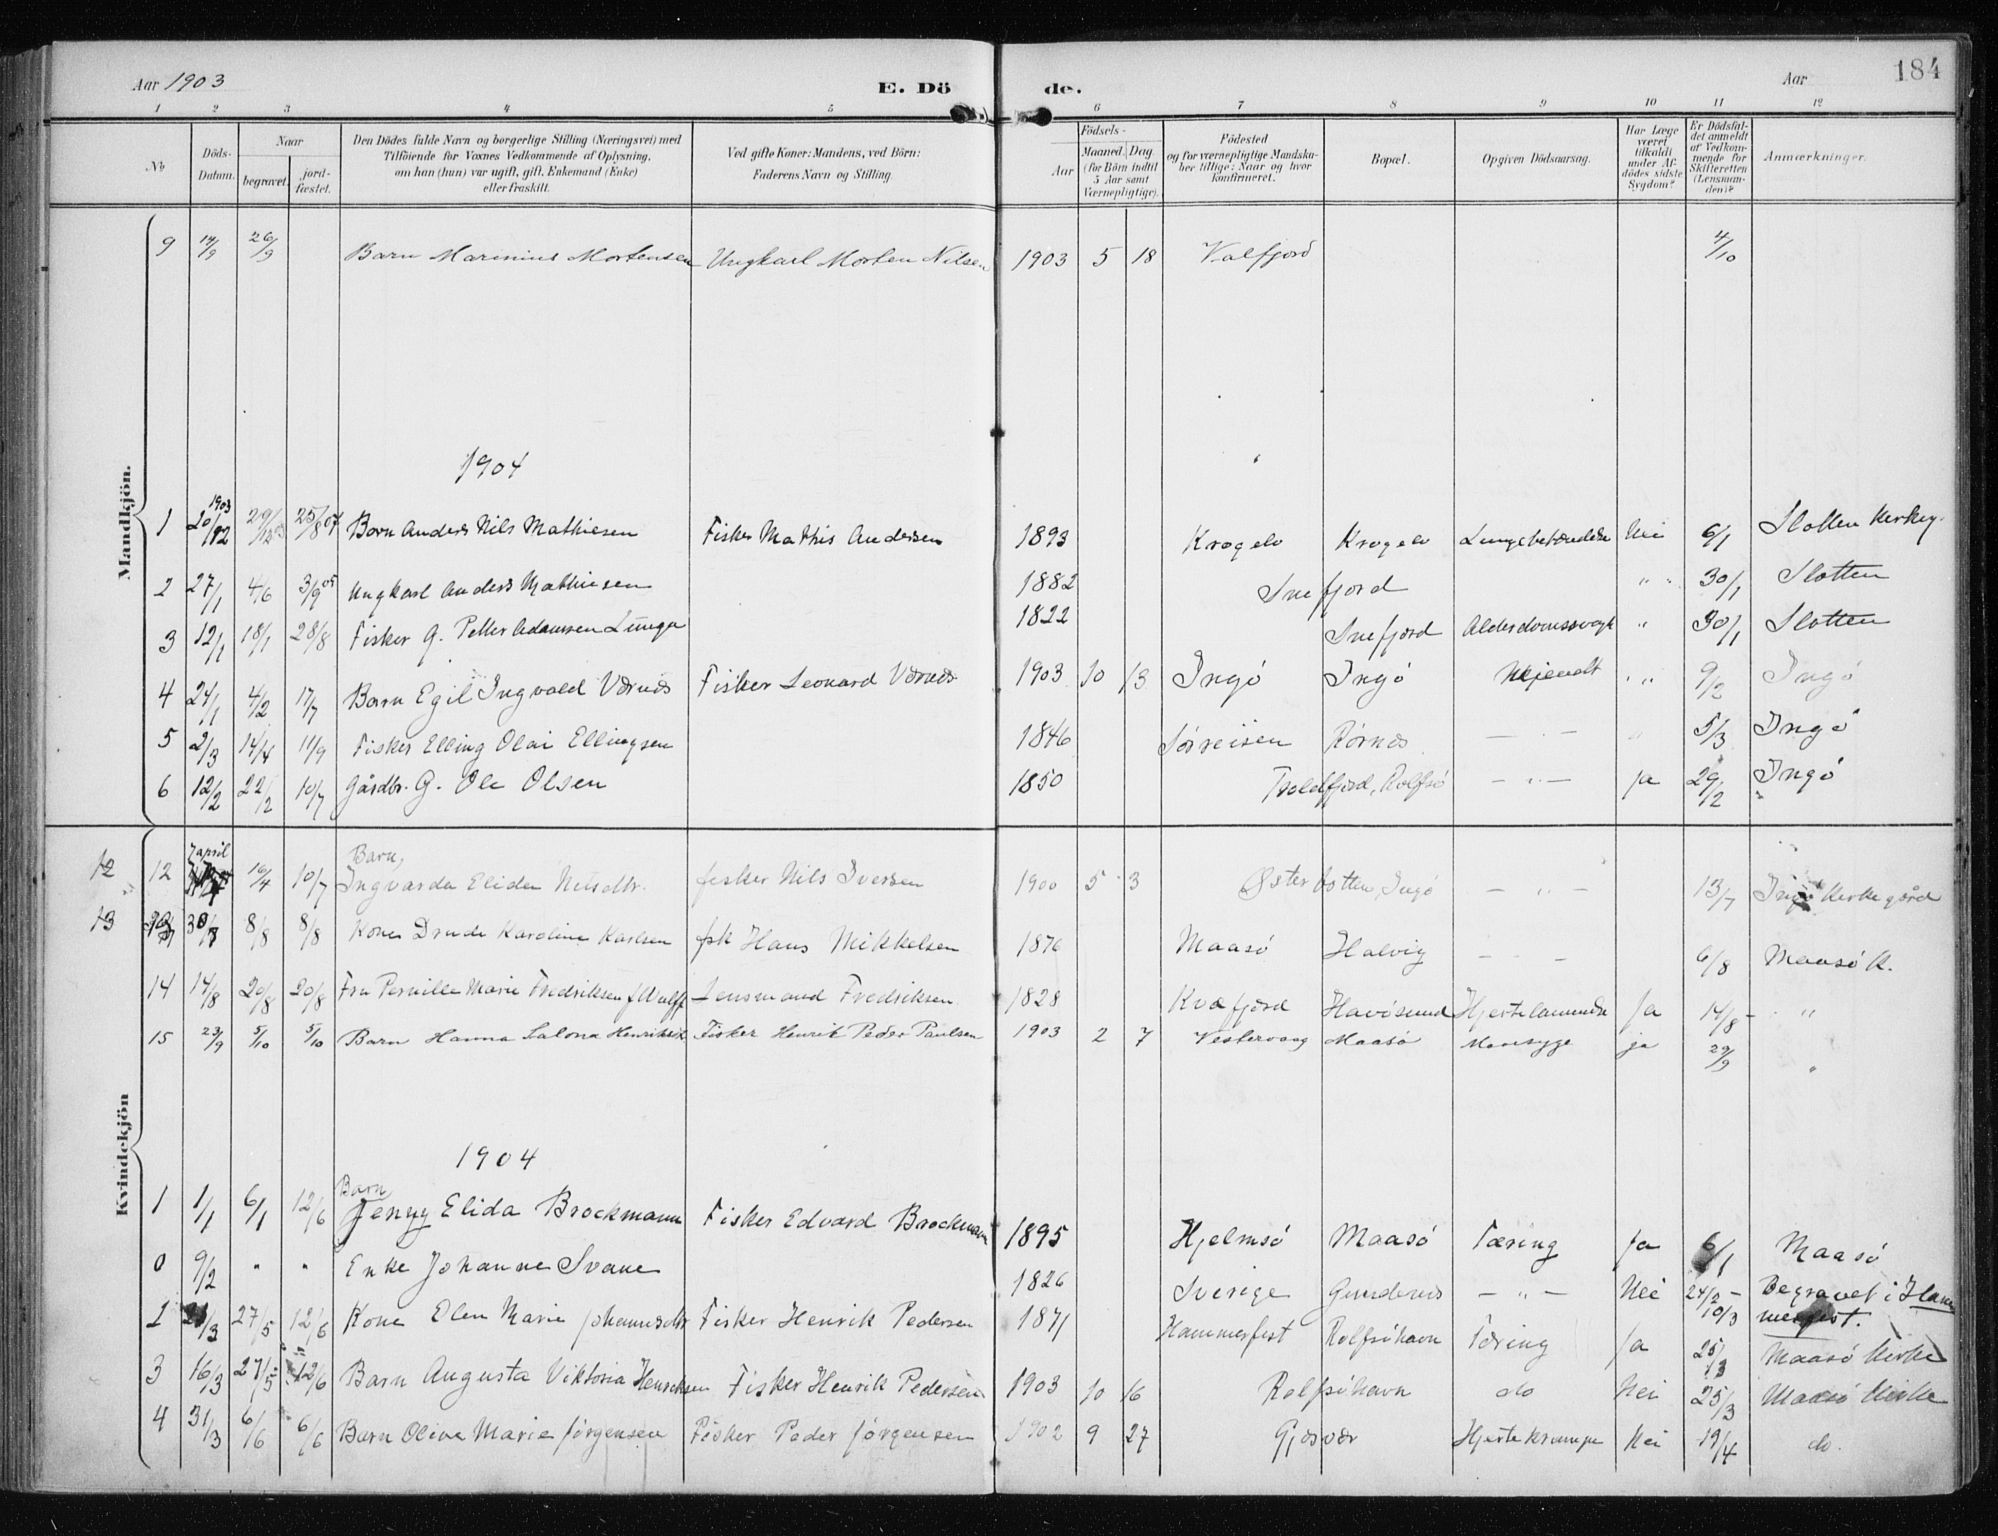 Aar 1903 E. Dö de. Aar 184
1 2 3 4 5 6 7 8 9 10 11 12
No Döds-Datum. Naar begravet. jord-fæstet. Den Dödes fulde Navn og borgerlige Stilling (Næringsvei) med Tilföiende for Voxnes Vedkommende af Oplysning, om han (hun) var ugift, gift, Enkemand (Enke) eller fraskilt. Ved gifte Koner: Mandens, ved Börn: Faderens Navn og Stilling. Födsels- Aar Maaned. Dag. (for Börn indtil 5 Aar samt Værnepligtige). Födested og for værnepligtige Mandskaber tillige: Naar og hvor konfirmeret. Bopæl. Opgiven Dödsaarsag. Har Læge været tilkaldt under Afdödes sidste Sygdom? Er Dödsfaldet anmeldt af Vedkommende for Skifteretten (Lensmanden)? Anmærkninger.
Mandkjön.
9 14/9 26/9 Barn Marinius Mortensen Ungkarl Morten Nilsen 1903 5 18 Valfjord 4/10
1904
1 1903 20/12 29/12 25/8 04 Barn Anders Nils Mathiesen Fisker Mathis Andersen 1893 Krogelv Krogelv Lungebetændelse Nei 6/1 Slotten Kerkeg.
2 27/1 4/6 3/9 05 Ungkarl Anders Mathiesen 1882 Snefjord " " 30/1 Slotten
3 12/1 18/1 28/8 Fisker G. Petter Adamsen Lunga 1822 Snefjord Alderdomssvagh " 30/1 Slotten
4 24/1 4/2 17/7 Barn Egil Ingvald Værnes Fisker Leonard Værnes 1903 10 13 Ingö Ingö Ukjendt " " 9/2 Ingö
5 2/3 14/4 11/9 Fisker Elling Olai Ellingsen 1846 Sörreisen Rörnes — " — " 5/3 Ingö
6 12/2 22/2 10/7 Gårdbr. G. Ole Olsen 1850 Troldfjord, Rolfsö — " — ja 29/2 Ingö
Kvindekjön
12 12 7 april 16/4 10/7 Barn, Ingvarda Elida Nilsdtr. fisker Nils Iversen 1900 5 3 Øster Ingö — " — 13/7 Ingö Kerkegård
13 30/7 8/8 8/8 Kone Drude Karoline Karlsen fsk Hans Mikkelsen 1876 Maasö Halvig - - - 6/8 Maasö K.
14 14/8 20/8 20/8 Fru Pernille Marie Fredriksen f Wulff Lensmand Fredriksen. 1828 Kvæfjord Havösund Hjertelammelse Ja 14/8 - "
15 23/9 5/10 5/10 Barn Hanna Salona Henriksdr Fisker Henrik Peder Paulsen 1903 2 7 Vestervaag Maasö Mavesyge ja 29/9 "
1904
1 1/1 6/1 12/6 Barn Jenny Elida Brockmann Fisker Edvard Brockmann 1895 Hjelmsö Maasö Tæring Ja 6/1 Maasö
0 9/2 " " Enke Johanne Svane 1826 Sverige Gundernes — " — Nei 24/2 - 10/3 Begravet i Hammerfest.
2 /3 27/5 12/6 Kone Olen Marie Johannesdtr Fisker Henrik Pedersen 1871 Hammerfest Rolfsöhavn Tæring Ja 25/3 Maasö Kirke
3 16/3 27/5 12/6 Barn Augusta Viktoria Henriksen Fisker Henrik Pedersen 1903 10 16 Rolfsöhavn do Nei 25/3 Maasö Kirke
4 31/3 6/6 6/6 Barn Oliva Marie Jörgensen Fisker Peder Jörgensen 1902 9 27 Gjæsvær Hjertekrampe Nei 19/4 do.